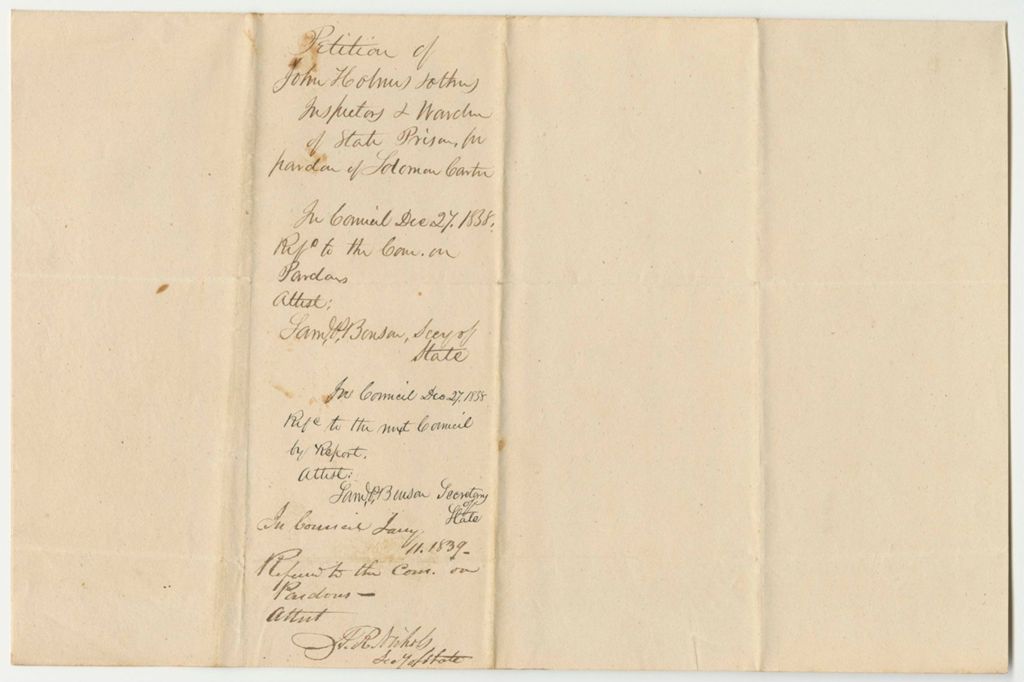 Petition of
John Holmes & others
Inspectors & Warden
of State Prison, for
pardon of Solomon Carter
In Council Dec 27. 1838.
Refd to the Com. on
Pardons
Attest:
Saml P. Benson, Secy of
State
In Council Dec 27. 1838
Refd to the next Council
by Report.
Attest:
Saml P. Benson Secretary
of
State
In Council Jany
11. 1839-
Referred to the Com. on
Pardons-
Attest
A. R. Nichols
Secy of State